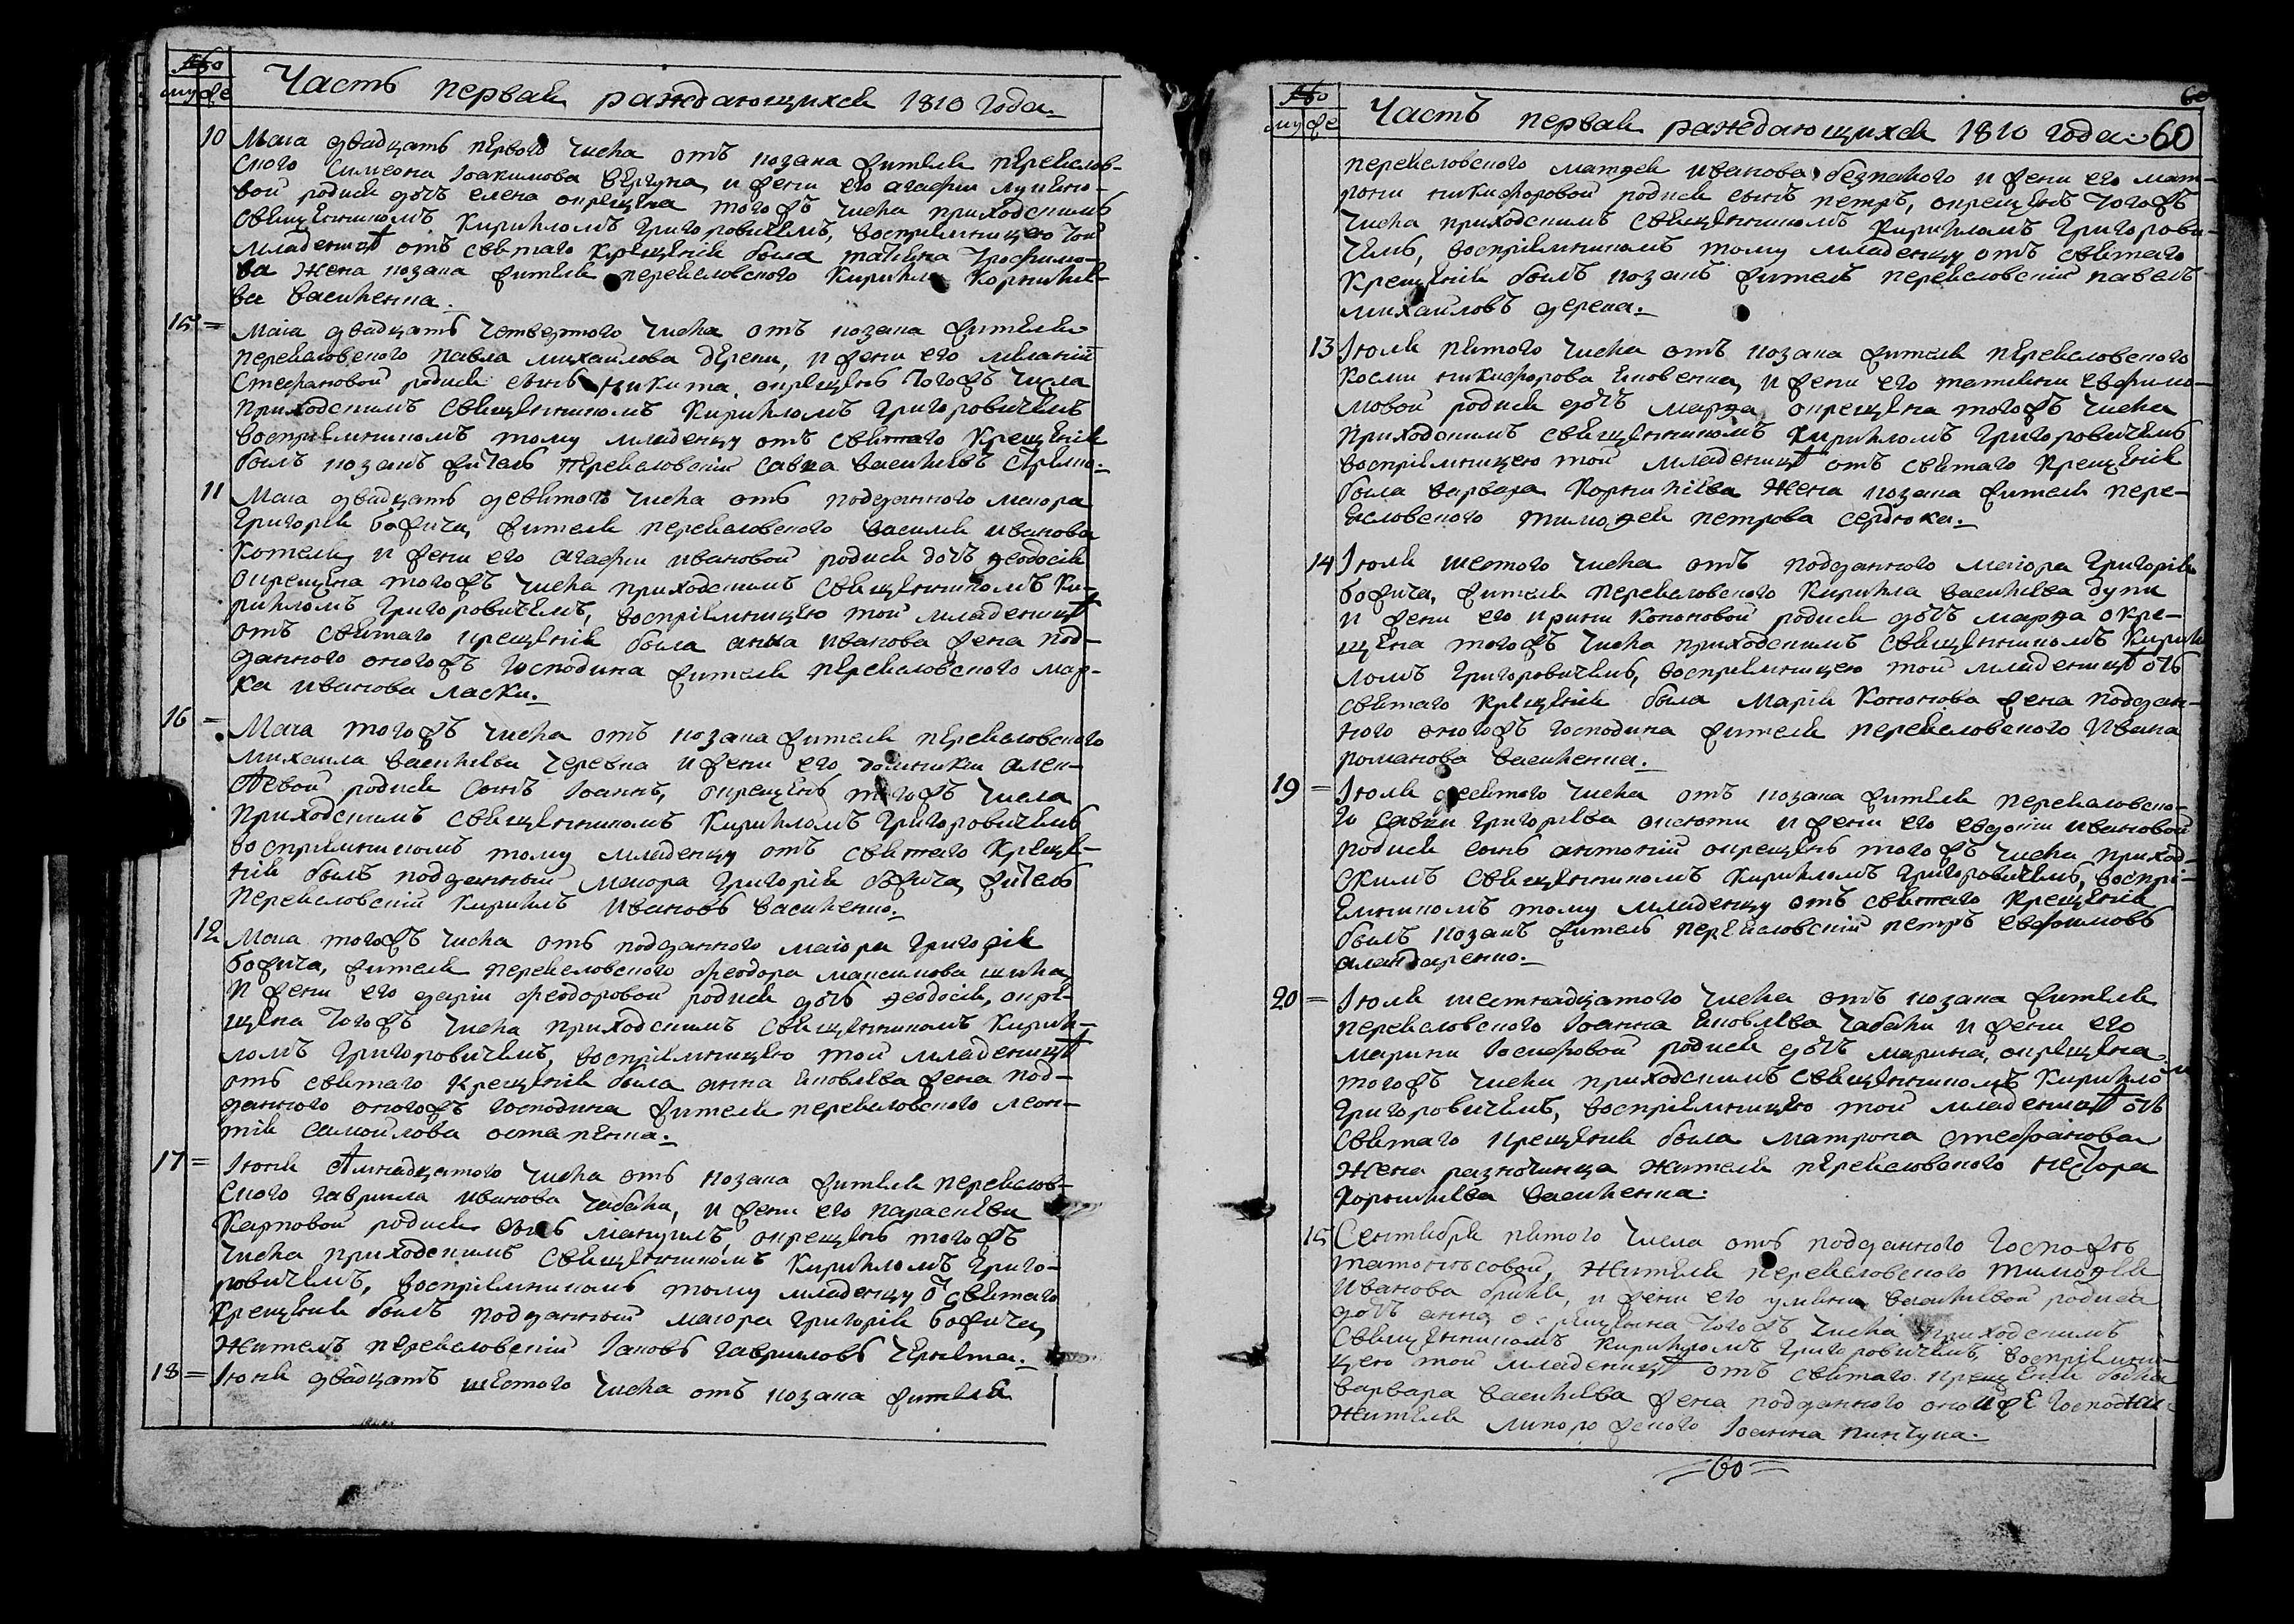 №
му же
Часть первая раждающихся 1810 года
10 Маia двадцать первого числа отъ козака жителя переяслов-
ского Симеона Iоакимова Вергуна, и жены его агафiи лукiяно-
вой родися дочь елена окрещена того жъ числа приходскимъ
священникомъ Кирилломъ Григоровичемъ, воспрiемницею той
младеницѣ отъ святаго крещенiя была татiяна Трофимо-
ва жена козака жителя переясловского Кирилла Корнилiе-
ва василенка.
15 = Маia двадцать четвертого числа отъ козака жителя
переясловского павла михайлова дереки, и жены его меланiи
Стефановой родися сынъ никита окрещенъ тогожъ числа
приходскимъ священникомъ Кирилломъ Григоровичемъ
воспрiемникомъ тому младенцу отъ святаго крещенiя
былъ козакъ житель переясловскiй савка васильевъ
11 Маia двадцать девятого числа отъ подданного маiора
Григорiя божича, жителя переясловского василя иванова
Котеля, и жены его агафiи ивановой родися дочъ ѳеодосiя
окрещена тогожъ числа приходскимъ священникомъ Ки-
рилломъ Григоровичемъ, воспрiемницею той младеницѣ
отъ святаго крещенiя была анна иванова жена под-
данного оногожъ господина жителя переясловского мар-
ка иванова ласки.
16 = Маia тогожъ числа отъ козака жителя переясловского
михаила васильева черевка и жены его домникiи алек-
сѣевой родися сынъ Iоаннъ, окрещенъ тогожъ числа
приходскимъ священникомъ Кирилломъ Григоровичемъ
воспрiемникомъ тому младенцу отъ святаго креще-
нiя былъ подданный маiора Григорiя божича, житель
переясловскiй Кириллъ Ивановъ василенко.
12 Маia тогожъ числа отъ подданного маiора Григорiя
божича, жителя переясловского феодора максимова шила,
и жены его дарiи феодоровой родися дочъ ѳеодосiя, окре-
щена тогожъ числа приходскимъ священникомъ Кирил-
ломъ Григоровичемъ, воспрiемницею той младеницѣ
отъ святаго крещенiя была анна яковлева жена под-
данного оногожъ господина жителя переясловского леон-
тiя самойлова остапенка.
17 = Iюня сѣмнадцатого числа отъ козака жителя переяслов-
ского гаврiила иванова чабака, и жены его параскевiи
Карповой родися сынъ мануилъ, окрещенъ тогожъ
числа приходскимъ священникомъ Кирилломъ Григо-
ровичемъ, воспрiемникомъ тому младенцу отъ святаго
крещенiя былъ подданный маiора Григорiя божича,
житель переясловскiй Iаковъ гаврiиловъ
18 = Iюня двадцать шестого числа отъ козака жителя
№
му же
Часть первая раждающихся 1810 года 60
переясловского матѳея иванова безпалого и жены его мат-
роны никифоровой родися сынъ петръ, окрещенъ тогожъ
числа приходскимъ священникомъ Кирилломъ Григорови-
чемъ, воспрiемникомъ тому младенцу отъ святаго
крещенiя былъ козакъ житель переясловскiй павелъ
михайловъ дерека.
13 Iюля пятого числа отъ козака жителя переясловского
Космы никифорова яковенка, и жены его татiяны евфимо-
мовой родися дочъ марѳа, окрещена тогожъ числа
приходскимъ священникомъ Кирилломъ Григоровичемъ
воспрiемницею той младеницѣ отъ святаго крещенiя
была варвара Корнилiева жена козака жителя пере-
ясловского тимоѳея петрова сердюка.
14 Iюля шестого числа отъ подданного маiора Григорiя
божича, жителя переясловского Кирилла васильева дупи
и жены его ирины Кононовой родися дочъ марѳа окре-
щена тогожъ числа приходскимъ священникомъ Кирил
ломъ Григоровичемъ, воспрiемницею той младеницѣ отъ
святаго крещенiя была Марiя Кононова жена поддан-
ного оногожъ господина жителя переясловского Ивана
романова василенка.
19 = Iюля девятого числа отъ козака жителя переясловско-
го савки григорiева и жены его евдокiи ивановой
родися сынъ антонiй окрещенъ тогожъ числа приход-
скимъ священникомъ Кирилломъ Григоровичемъ, воспрi-
емникомъ тому младенцу отъ святаго крещенiя
былъ козакъ житель переясловскiй петръ евфимовъ
аландаренко.
20 = Iюля шестнадцатого числа отъ козака жителя
переясловского Iоанна яковлева чабака и жены его
марины Iосифовой родися дочъ марина, окрещена
тогожъ числа приходскимъ священникомъ Кирилломъ
Григоровичемъ, воспрiемницею той младеницѣ отъ
святаго крещенiя была матрона стефанова
жена разночинца жителя переясловского нестора
Корнилiева василенка.
15 Сентября пятого числа отъ подданного госпожъ
жителя переясловского тимоѳея
Иванова и жены его улiяны васильевой родися
дочъ анна, окрещенна тогожъ числа приходскимъ
священникомъ Кирилломъ Григоровичемъ, воспрiемни-
цею той младеницѣ отъ святаго крещенiя была
варвара васильева жена подданного господжи
жителя Iоанна пинчука.
60